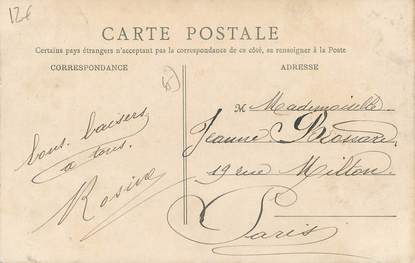 12€
CARTE POSTALE
Certains pays étrangers n'acceptant pas la correspondance de ce côté, se renseigner à la Poste
CORRESPONDANCE
ADRESSE
M Mademoiselle
Jeanne
19 rue Milton
Paris
bons baisers
à tous.
Rosine